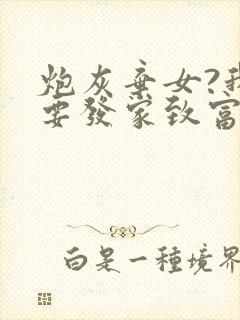 炮灰棄女?我
要發家致富
白是一種境界